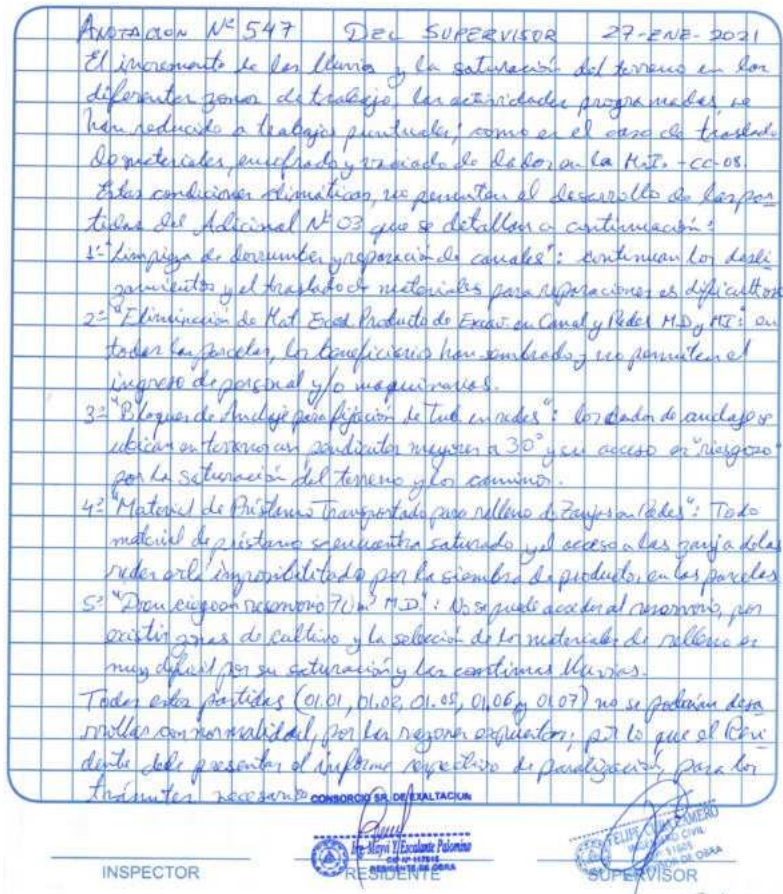 ANOTACION Nº 547 DEL SUPERVISOR 27-ENE-2021
El incremento de las lluvias y la saturación del terreno en los
diferentes zonas de trabajo, las actividades programadas, se
han reducido a trabajos puntuales; como es el caso de traslado
de materiales, encofrado y vaciado de dados en la M.I. -CC-08.
Estas condiciones climáticas, no permiten el desarrollo de las par
tidas del Adicional Nº 03 que se detallan a continuación:
1º "Limpieza de derrumbes y reparación de canales": continuan los desli
zamientos y el traslado de materiales para reparaciones es dificultoso
2º "Eliminación de Mat Exced Producto de Excav. en Canal y Redes M.D y MI": en
todas las parcelas, los beneficiario han sembrado y no permiten el
ingreso de personal y/o maquinarias.
3º "Bloques de Anclaje para fijación de Tub en redes": los dados de anclaje se
ubican en terrenos con pendientes mayores a 30° y su acceso es "riesgozo"
por la saturación del terreno y los caminos.
4º "Material de Préstamo Transportado para relleno de Zanjas en Redes": Todo
material de préstamo se encuentra saturado y el acceso a las zanja de las
redes está imposibilitado por la siembra de producto, en las parcelas
5º "Dren ciego en reservorio M.D": No se puede acceder al reservorio, por
existir zonas de cultivo y la selección de los materiales de relleno es
muy dificil por su saturación y las continuas lluvias.
Todas estas partidas (01.01, 01.02, 01.05, 01.06 y 01.07) no se podrían desa
rrollar con normalidad, por las razones expuestas; por lo que el Resi
dente debe presentar el informe respectivo de paralización, para los
trámites necesarios
CONSORCIO SR. DE EXALTACION
Ing. Mayvi Y. Escalante Palomino
CIP Nº 117615
RESIDENTE DE OBRA
FELIPE CAMERO
INGENIERO CIVIL
INSPECTOR RESIDENTE SUPERVISOR